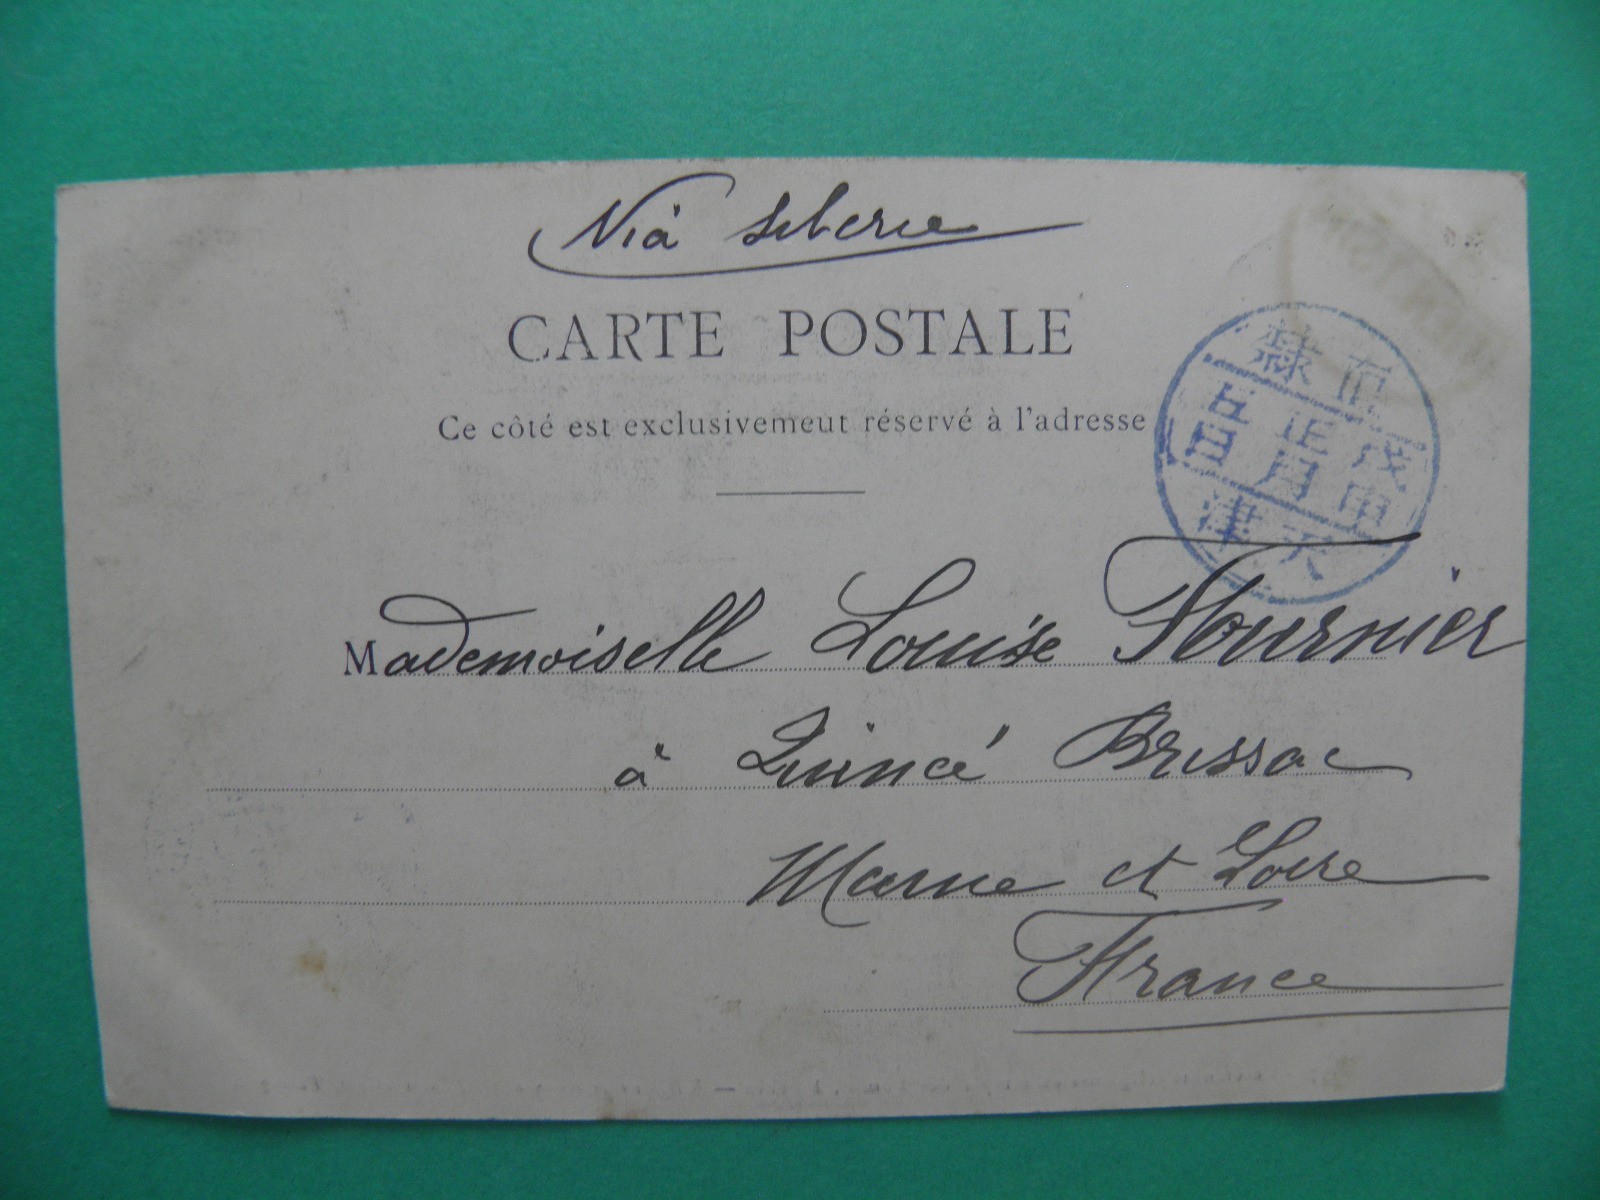 Viâ Siberie
CARTE POSTALE
Ce côté est exclusivemeut réservé à l'adresse
直隸
戊申
正月
廿四
天津
Mademoiselle Louise Fournier
à Quincé Brissac
Maine et Loire
France